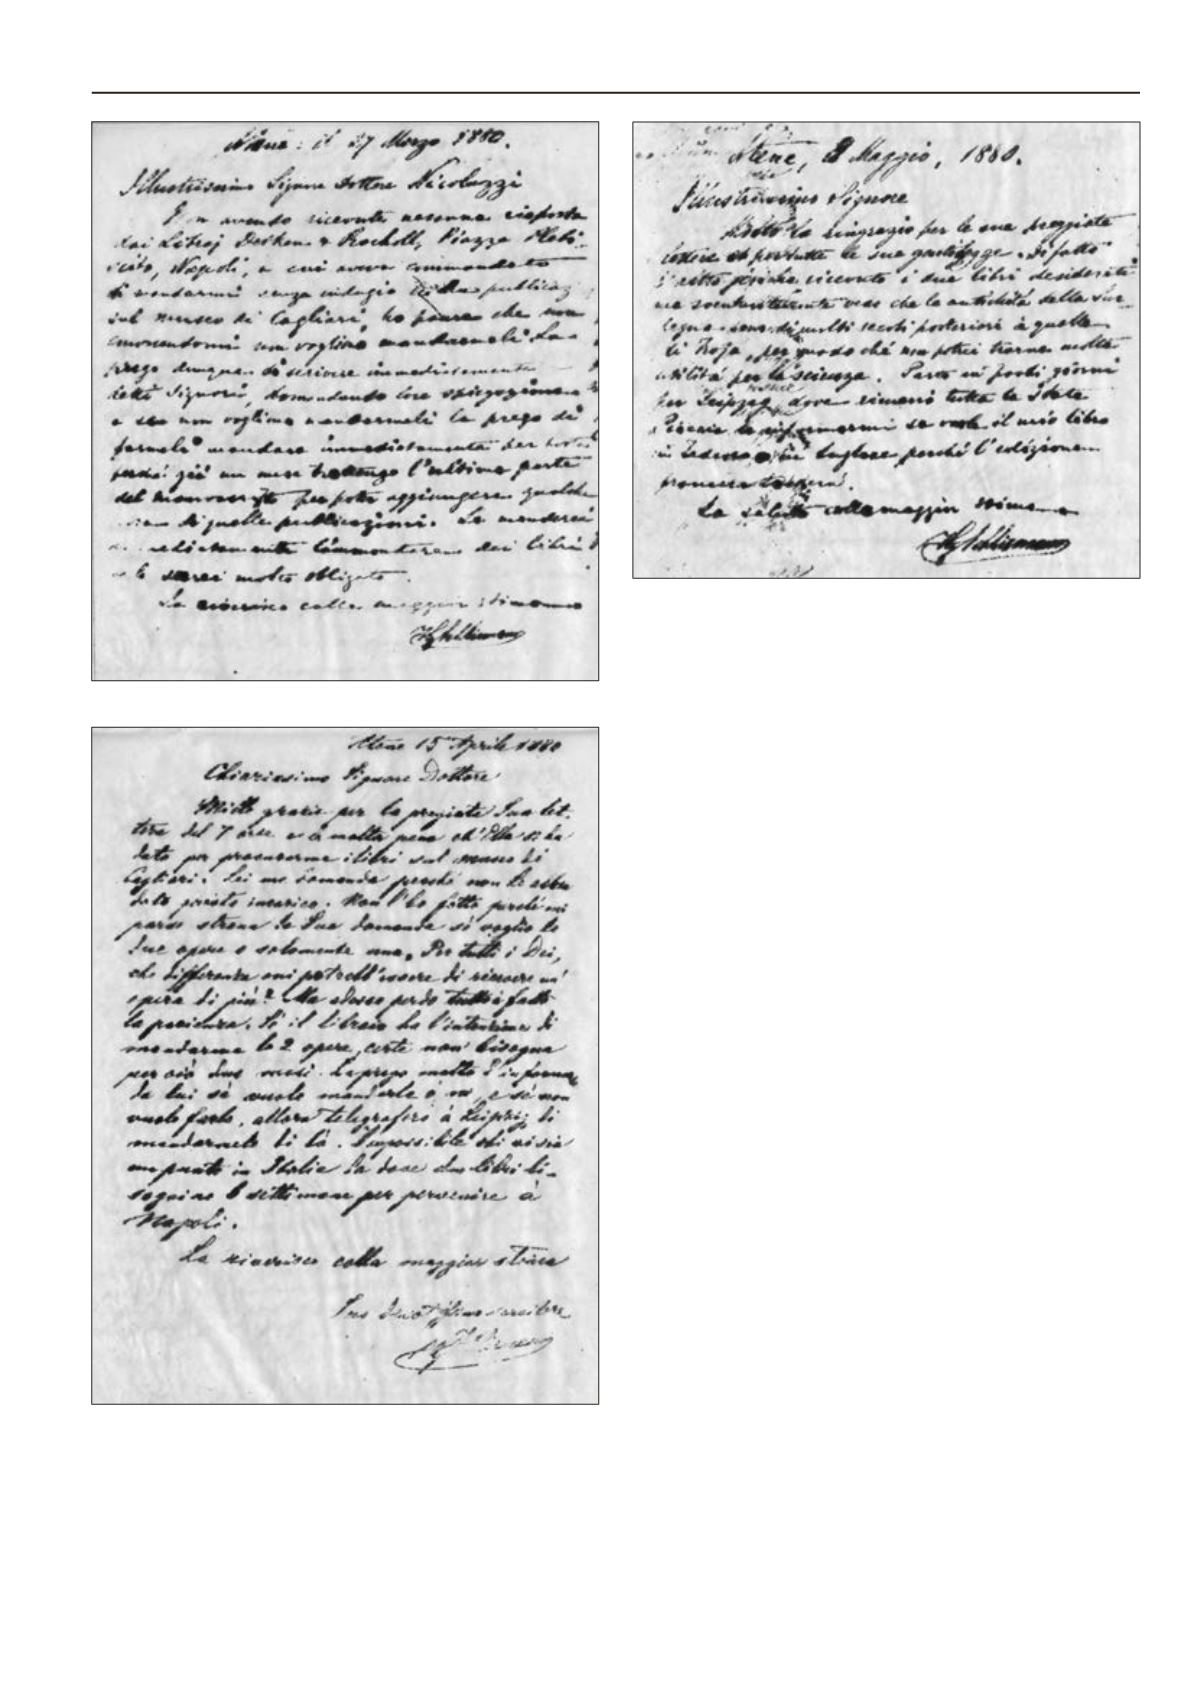 Atene: il 27 Marzo 1880.
Illustrissimo Signore Dottore Nicoluzzi
Non avendo ricevuto nessuna risposta
dai Libraj Detken & Rocholl, Piazza Plebi-
scito, Napoli, a cui aveva commandato
di mandarmi senza indugio publicaz
sul museo di Cagliari, ho paura che non
conoscendomi non vogliono mandarmeli. La
prego dunque di scrivere immediatamente
detti Signori, domandando loro spiegazione
e se non vogliono mandarmeli la prego di
farmeli mandare immediatamente per posta
perchè già un mese trattengo l'ultima parte
del manoscritto per poter aggiungere qualche
di quelle publicazioni. Le manderei
immediatamente l'ammontare dei libri
e le sarei molto obligato.
La riverisco colla maggior stima
HySchliemann
Atene 15 Aprile 1880
Chiarissimo Signore Dottore
Molte grazie per la pregiata Sua let-
tera del 7 corr. e la molta pena ch'Ella si ha
dato per procurarme i libri sul museo di
Cagliari. Lei me domanda perchè non le abbia
dato questo incarico. Non l'ho fatto perchè mi
parve strana la Sua domanda si voglio le
due opere o solamente una. Per tutti i Dei,
che differenza mi potrebb'essere di ricevere un'
opera di più? Ma adesso perdo tutto à fatto
la pacienza. Se il libraio ha l'intenzione di
mandarme le 2 opere, certe non bisogna
per ciò due mesi. La prego molto d'informar
da lui sè vuole mandarle à me, e sè non
vuole farlo, allora telegraferò à Leipzig di
mandarmele di là. Impossibile chi vi sia
un punto in Italia da dove due libri bi-
sognino 6 settimane per pervenire à
Napoli.
La riverisco colla maggior stima
Suo devotissimo servitore
HySchliemann
Atene, 2 Maggio, 1880.
Illustrissimo Signore
Molto la ringrazio per le sue preggiate
lettere et per tutte le sue gentilezze. Di fatto
l'altro jeri ho ricevuto i due libri desiderati
ma sventuratamente vedo che le antichità della Sar-
degna sono di molti secoli posteriori à quelle
di Troja, per modo chè non potrei trarne molta
utilità per la scienza. Parto in pochi giorni
per Leipzig, dove rimarrò tutta la state
informarmi se vuole il mio libro
in Tedesco o in Inglese perchè l'edizione
francese
La saluto colla maggior stima
HySchliemann